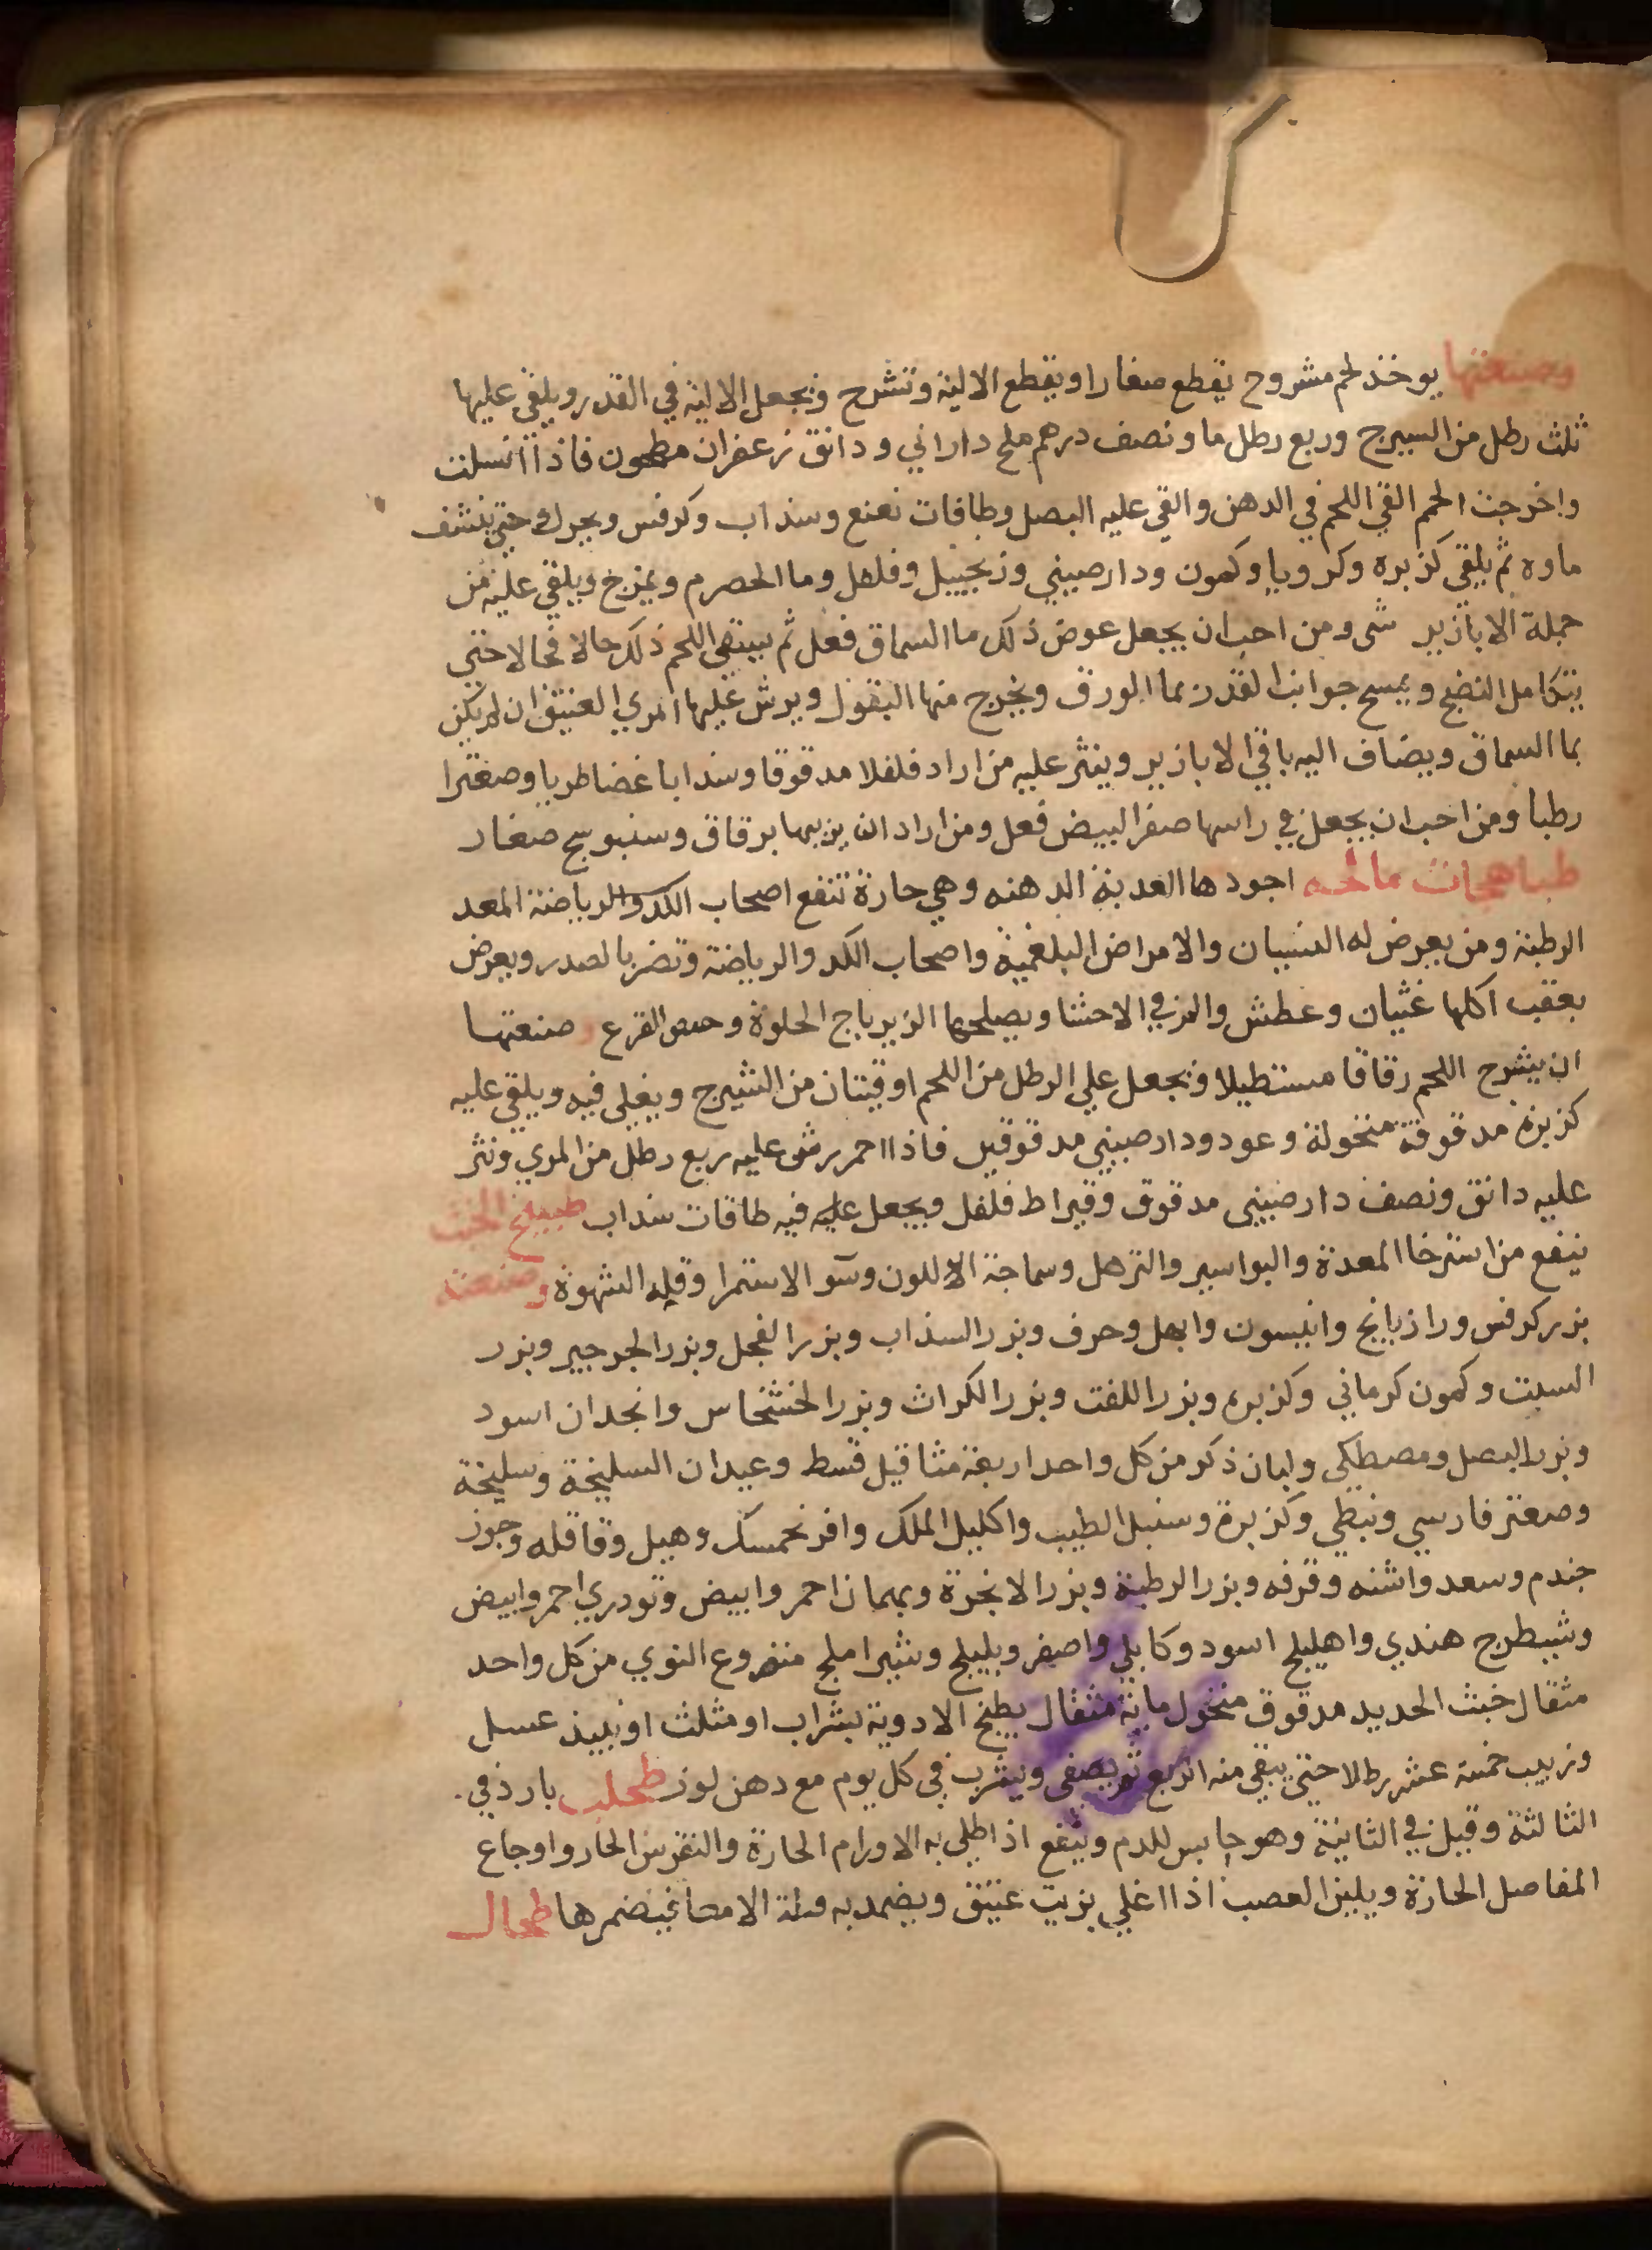 وصنعتها يوخذ لحم مشروح يقطع صغارا ويقطع الالية وتشرح وتجعل الالية في القدر ويلقي عليها
ثلث رطل من السيرج وربع رطل ما ونصف درهم ملح داراني ودانق زعفران مطحون فاذا انسلت
واخرجت الحم القي اللحم في الدهن والقي عليه البصل وطاقات نعنع وسذاب وكرفس ويحرك حتي ينشف
ماوه ثم يلقي كزبره وكرويا وكمون ودارصيني وزنجبيل وفلفل وما الحصرم ويمزج ويلقي عليه من
جملة الابازير شي ومن احب ان يجعل عوض ذلك ما السماق فعل ثم يبتقي اللحم ذلك حالا فحالا حتي
يتكامل النضج ويمسح جوانب القدر بما الورق ويخرج منها البقول ويرش عليها المري العتيق ان لم يكن
بما السماق ويضاف اليه باقي الابازير وينثر عليه من اراد فلفلا مدقوقا وسذابا غضا طريا وصعترا
رطبا ومن احب ان يجعل في راسها صفر البيض فعل ومن اراد ان يزيبها برقاق وسنبوسج صغار
طباهجات مالحه اجودها العذبة الدهنه وهي حارة تنفع اصحاب الكد والرياضة المعد
الرطبة ومن يعرض له النسيان والامراض البلغمية واصحاب الكد والرياضة وتضر بالصدر ويعرض
بعقب اكلها غثيان وعطش والمز في الاحشا ويصلحها الزيرباج الحلوة وحمص القرع صنعتها
ان يشرح اللحم رقاقا مستطيلا ويجعل علي الرطل من اللحم اوقيتان من الشيرج ويغلي فيه ويلقي عليه
كزبرة مدقوقة منخولة وعود ودارصيني مدقوقين فاذا احمر رش عليه ربع رطل من المري ونثر
عليه دانق ونصف دارصيني مدقوق وقيراط فلفل ويجعل عليه فيه طاقات سذاب طبيخ الخبث
ينفع من استرخا المعدة والبواسير والترهل وسماجة اللون وسو الاستمرا وقله الشهوة وصنعته
بزر كرفس ورازيانج وانيسون وابهل وحرف وبزر السذاب وبزر الفجل وبزر الجرجير وبزر
السبت وكمون كرماني وكزبره وبزر اللفت وبزر الكراث وبزر الخشخاس وانجدان اسود
وبزر البصل ومصطكي ولبان ذكر من كل واحد اربعة مثاقيل قسط وعيدان السليخة وسليخة
وصعتر فارسي ونبطي وكزبرة وسنبل الطيب واكليل الملك وافرنحمسك وهيل وقاقله وجوز
جندم وسعد واشنه وقرفه وبزر الرطبة وبزر الانجرة وبهمان احمر وابيض وتودري احمر وابيض
وشيطرج هندي واهليلج اسود وكابلي واصفر وبليلج وشير املج منزوع النوي من كل واحد
مثقال خبث الحديد مدقوق منخول ماية مثقال يطبخ الادوية بشراب او مثلث او نبيذ عسل
وزبيب خمسة عشر رطلا حتي يبقي منه الربع ثم يصفي ويشرب في كل يوم مع دهن لوز طحلب بارد في
الثالثة وقيل في الثانية وهو حابس للدم وينفع اذ اطلي به الاورام الحارة والنقرس الحار واوجاع
المفاصل الحارة ويلين العصب اذا اغلي بزيت عتيق ويضمد به الامعا فيضمرها طحال